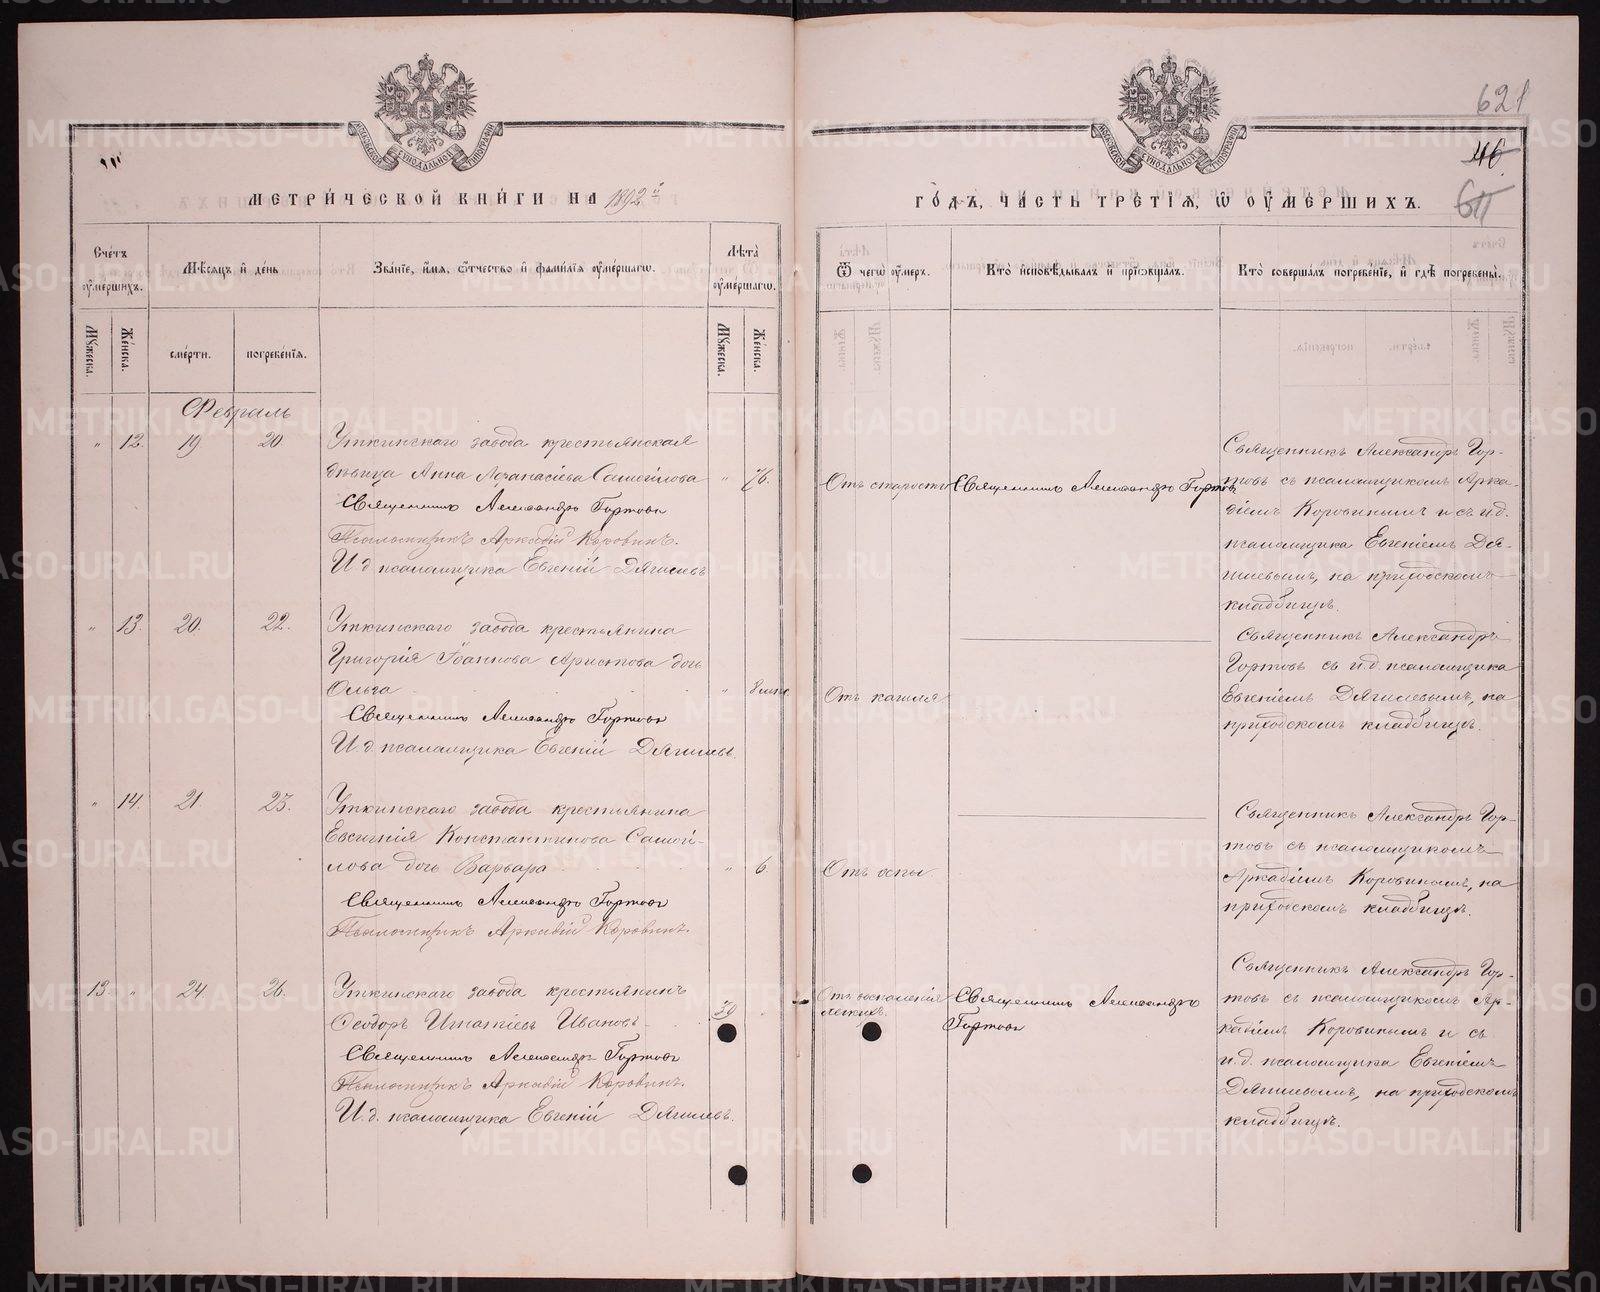 621
46.
611
МЕТРИ́ЧЕСКОЙ КНИ́ГИ НА 1892 й
ГО́ДЪ, ЧА́СТЬ ТРЕ́ТІѦ, Ѿ ОУ҆МЕ́РШИХЪ.
Сче́тъ оу҆ме́ршихъ.
Мѣ́сѧцъ и҆ де́нь
Зва́нїе, и҆́мѧ, ѻ҆́тчество и҆ фами́лїѧ оу҆ме́ршагѡ.
Лѣ́та оу҆ме́ршагѡ.
Ѿ чегѡ̀ оу҆́меръ.
Кто̀ и҆сповѣ́дывалъ и҆ прїѡбща́лъ.
Кто̀ соверша́лъ погребе́нїе, и҆ гдѣ̀ погребены̀.
Мꙋ́жеска.
Же́нска.
сме́рти.
погребе́нїѧ.
Мꙋ́жеска.
Же́нска.
Февраль
" 12. 19 20
Уткинскаго завода крестьянская
дѣвица Анна Аѳанасіева Самойлова " 76.
Священникъ Александръ Гортовъ
Псаломщикъ Аркадій Коровинъ.
И д псаломщика Евгеній Дягилевъ
Отъ старости
Священникъ Александръ Гортовъ
Священникъ Александръ Гор-
товъ съ псаломщикомъ Арка-
діемъ Коровинымъ и съ и.д.
псаломщика Евгеніемъ Дя-
гилевымъ, на приходскомъ
кладбищѣ.
" 13. 20. 22.
Уткинскаго завода крестьянина
Григорія Іоаннова Аристова дочь
Ольга "
Священникъ Александръ Гортовъ
И. д. псаломщика Евгеній Дягилевъ.
Отъ кашля
Священникъ Александръ
Гортовъ съ и.д. псаломщика
Евгеніемъ Дягилевымъ, на
приходскомъ кладбищѣ.
" 14. 21. 23.
Уткинскаго завода крестьянина
Евсигнія Константинова Самой-
лова дочь Варвара " 6.
Священникъ Александръ Гортовъ
Псаломщикъ Аркадій Коровинъ.
Отъ оспы.
Священникъ Александръ Гор-
товъ съ псаломщикомъ
Аркадіемъ Коровинымъ, на
приходскомъ кладбищѣ.
13. " 24 26.
Уткинскаго завода крестьянинъ
Ѳеодоръ Игнатіевъ Ивановъ 39
Священникъ Александръ Гортовъ
Псаломщикъ Аркадій Коровинъ.
И. д. псаломщика Евгеній Дягилевъ.
Отъ воспаленія
легкихъ.
Священникъ Александръ
Гортовъ
Священникъ Александръ Гор-
товъ съ псаломщикомъ Ар-
кадіемъ Коровинымъ и съ
и.д. псаломщика Евгеніемъ
Дягилевымъ, на приходскомъ
кладбищѣ.
METRIKI.GASO-URAL.RU